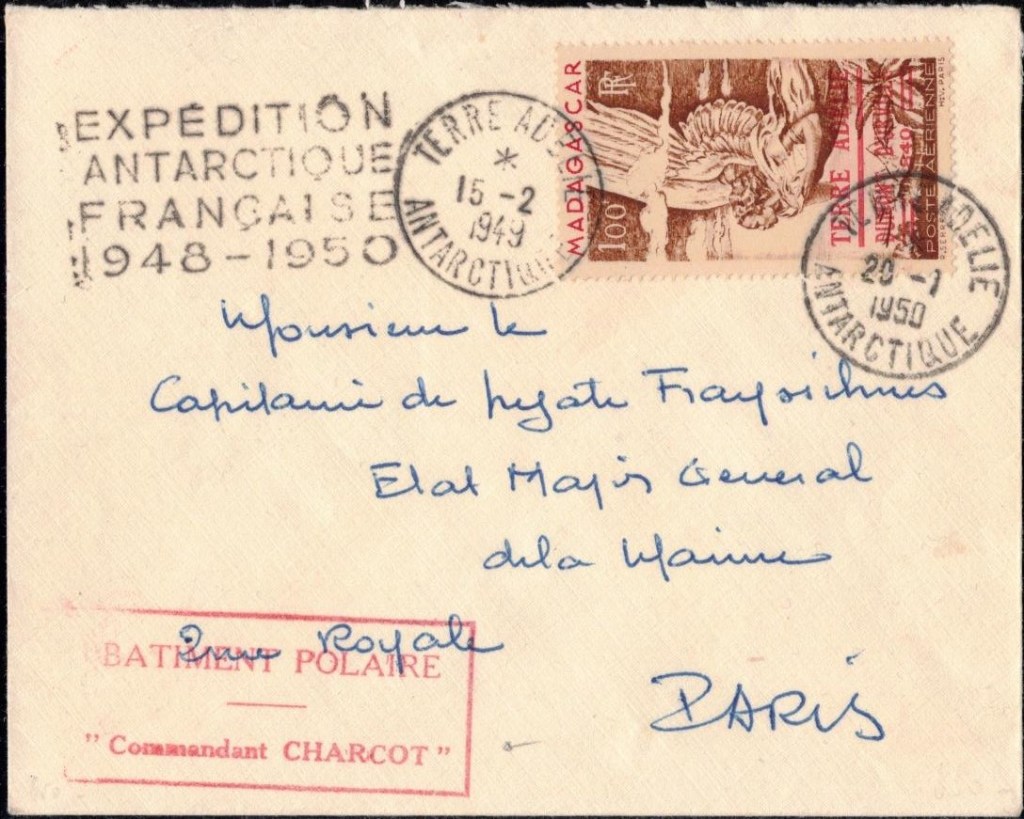 EXPÉDITION
ANTARCTIQUE
FRANÇAISE
1948-1950
TERRE ADELIE
15-2
1949
ANTARCTIQUE
MADAGASCAR
100F
RF
TERRE ADÉLIE
DUMONT D'URVILLE
1840
POSTE AÉRIENNE
HÉL. PARIS
TERRE ADELIE
20-1
1950
ANTARCTIQUE
Monsieur le
Capitaine de frégate
Etat Major General
de la Marine
2 rue Royale
PARIS
BATIMENT POLAIRE
"Commandant CHARCOT"